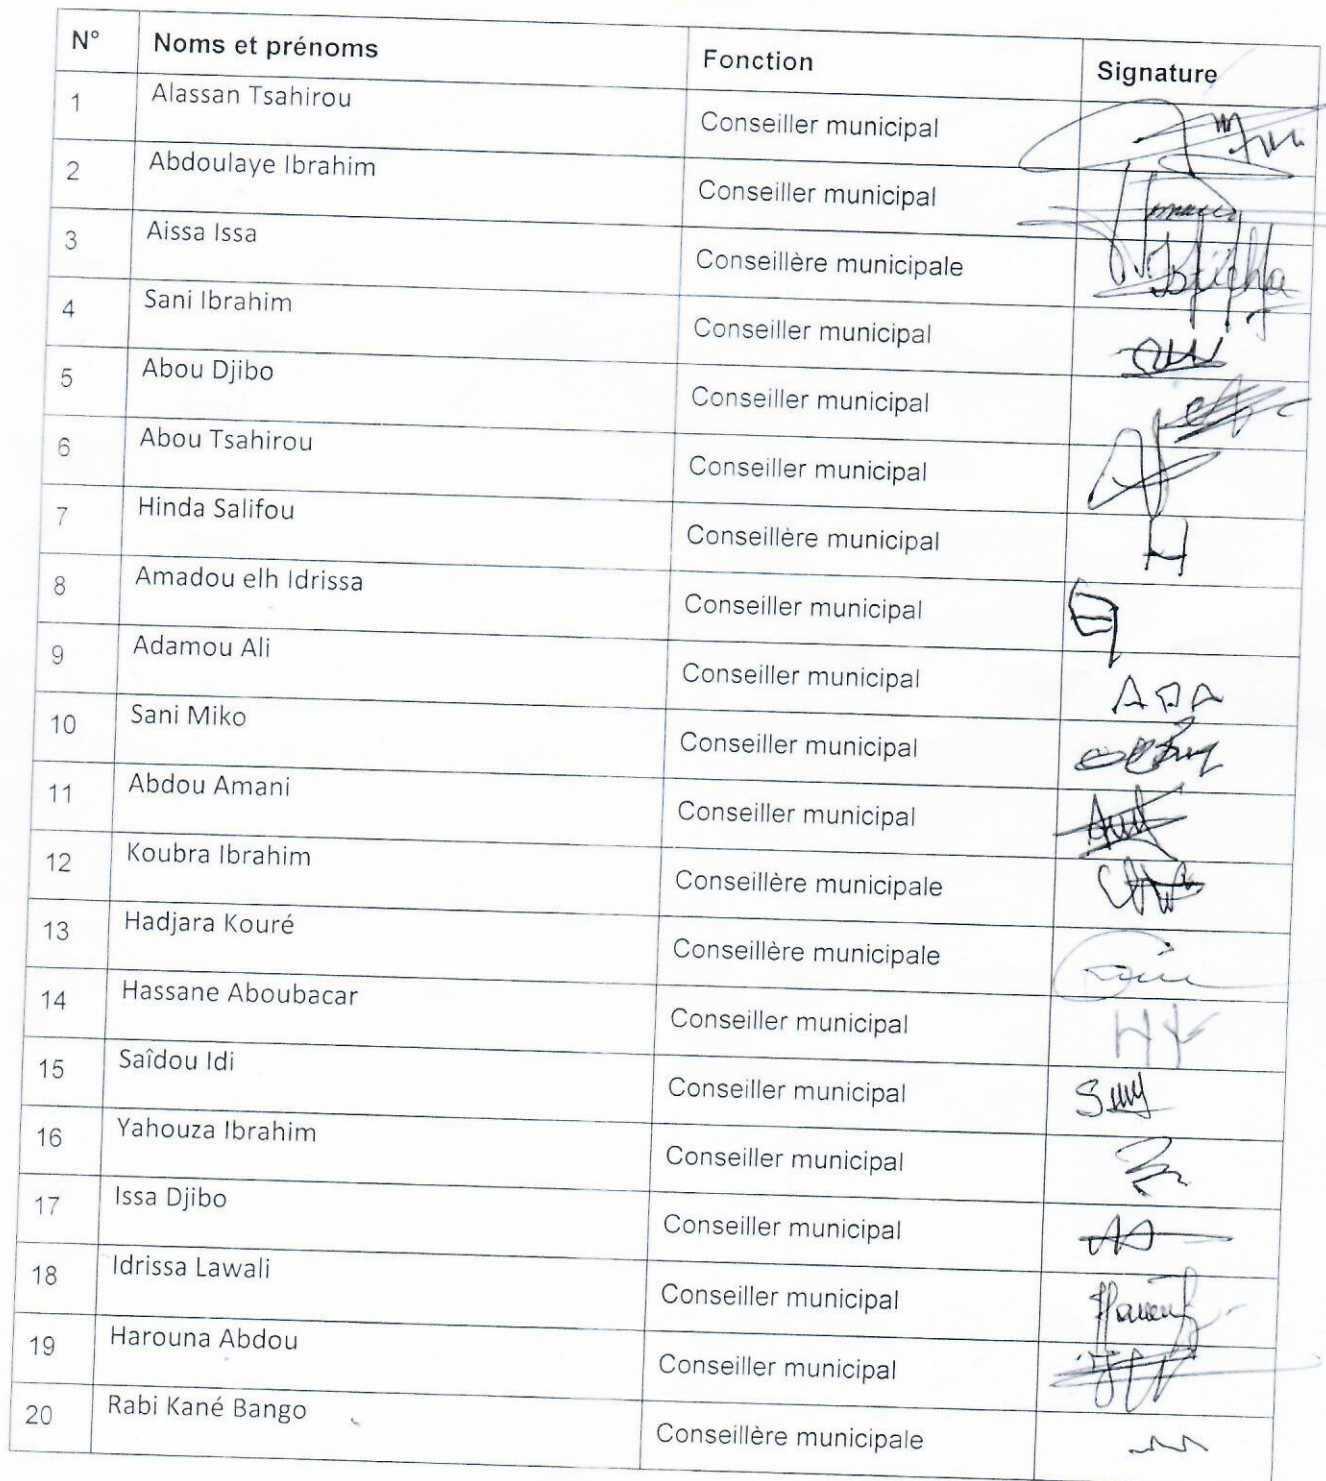 N° Noms et prénoms Fonction Signature
1 Alassan Tsahirou Conseiller municipal
2 Abdoulaye Ibrahim Conseiller municipal
3 Aissa Issa Conseillère municipale
4 Sani Ibrahim Conseiller municipal
5 Abou Djibo Conseiller municipal
6 Abou Tsahirou Conseiller municipal
7 Hinda Salifou Conseillère municipal
8 Amadou elh Idrissa Conseiller municipal
9 Adamou Ali Conseiller municipal
10 Sani Miko Conseiller municipal
11 Abdou Amani Conseiller municipal
12 Koubra Ibrahim Conseillère municipale
13 Hadjara Kouré Conseillère municipale
14 Hassane Aboubacar Conseiller municipal
15 Saîdou Idi Conseiller municipal
16 Yahouza Ibrahim Conseiller municipal
17 Issa Djibo Conseiller municipal
18 Idrissa Lawali Conseiller municipal
19 Harouna Abdou Conseiller municipal
20 Rabi Kané Bango Conseillère municipale